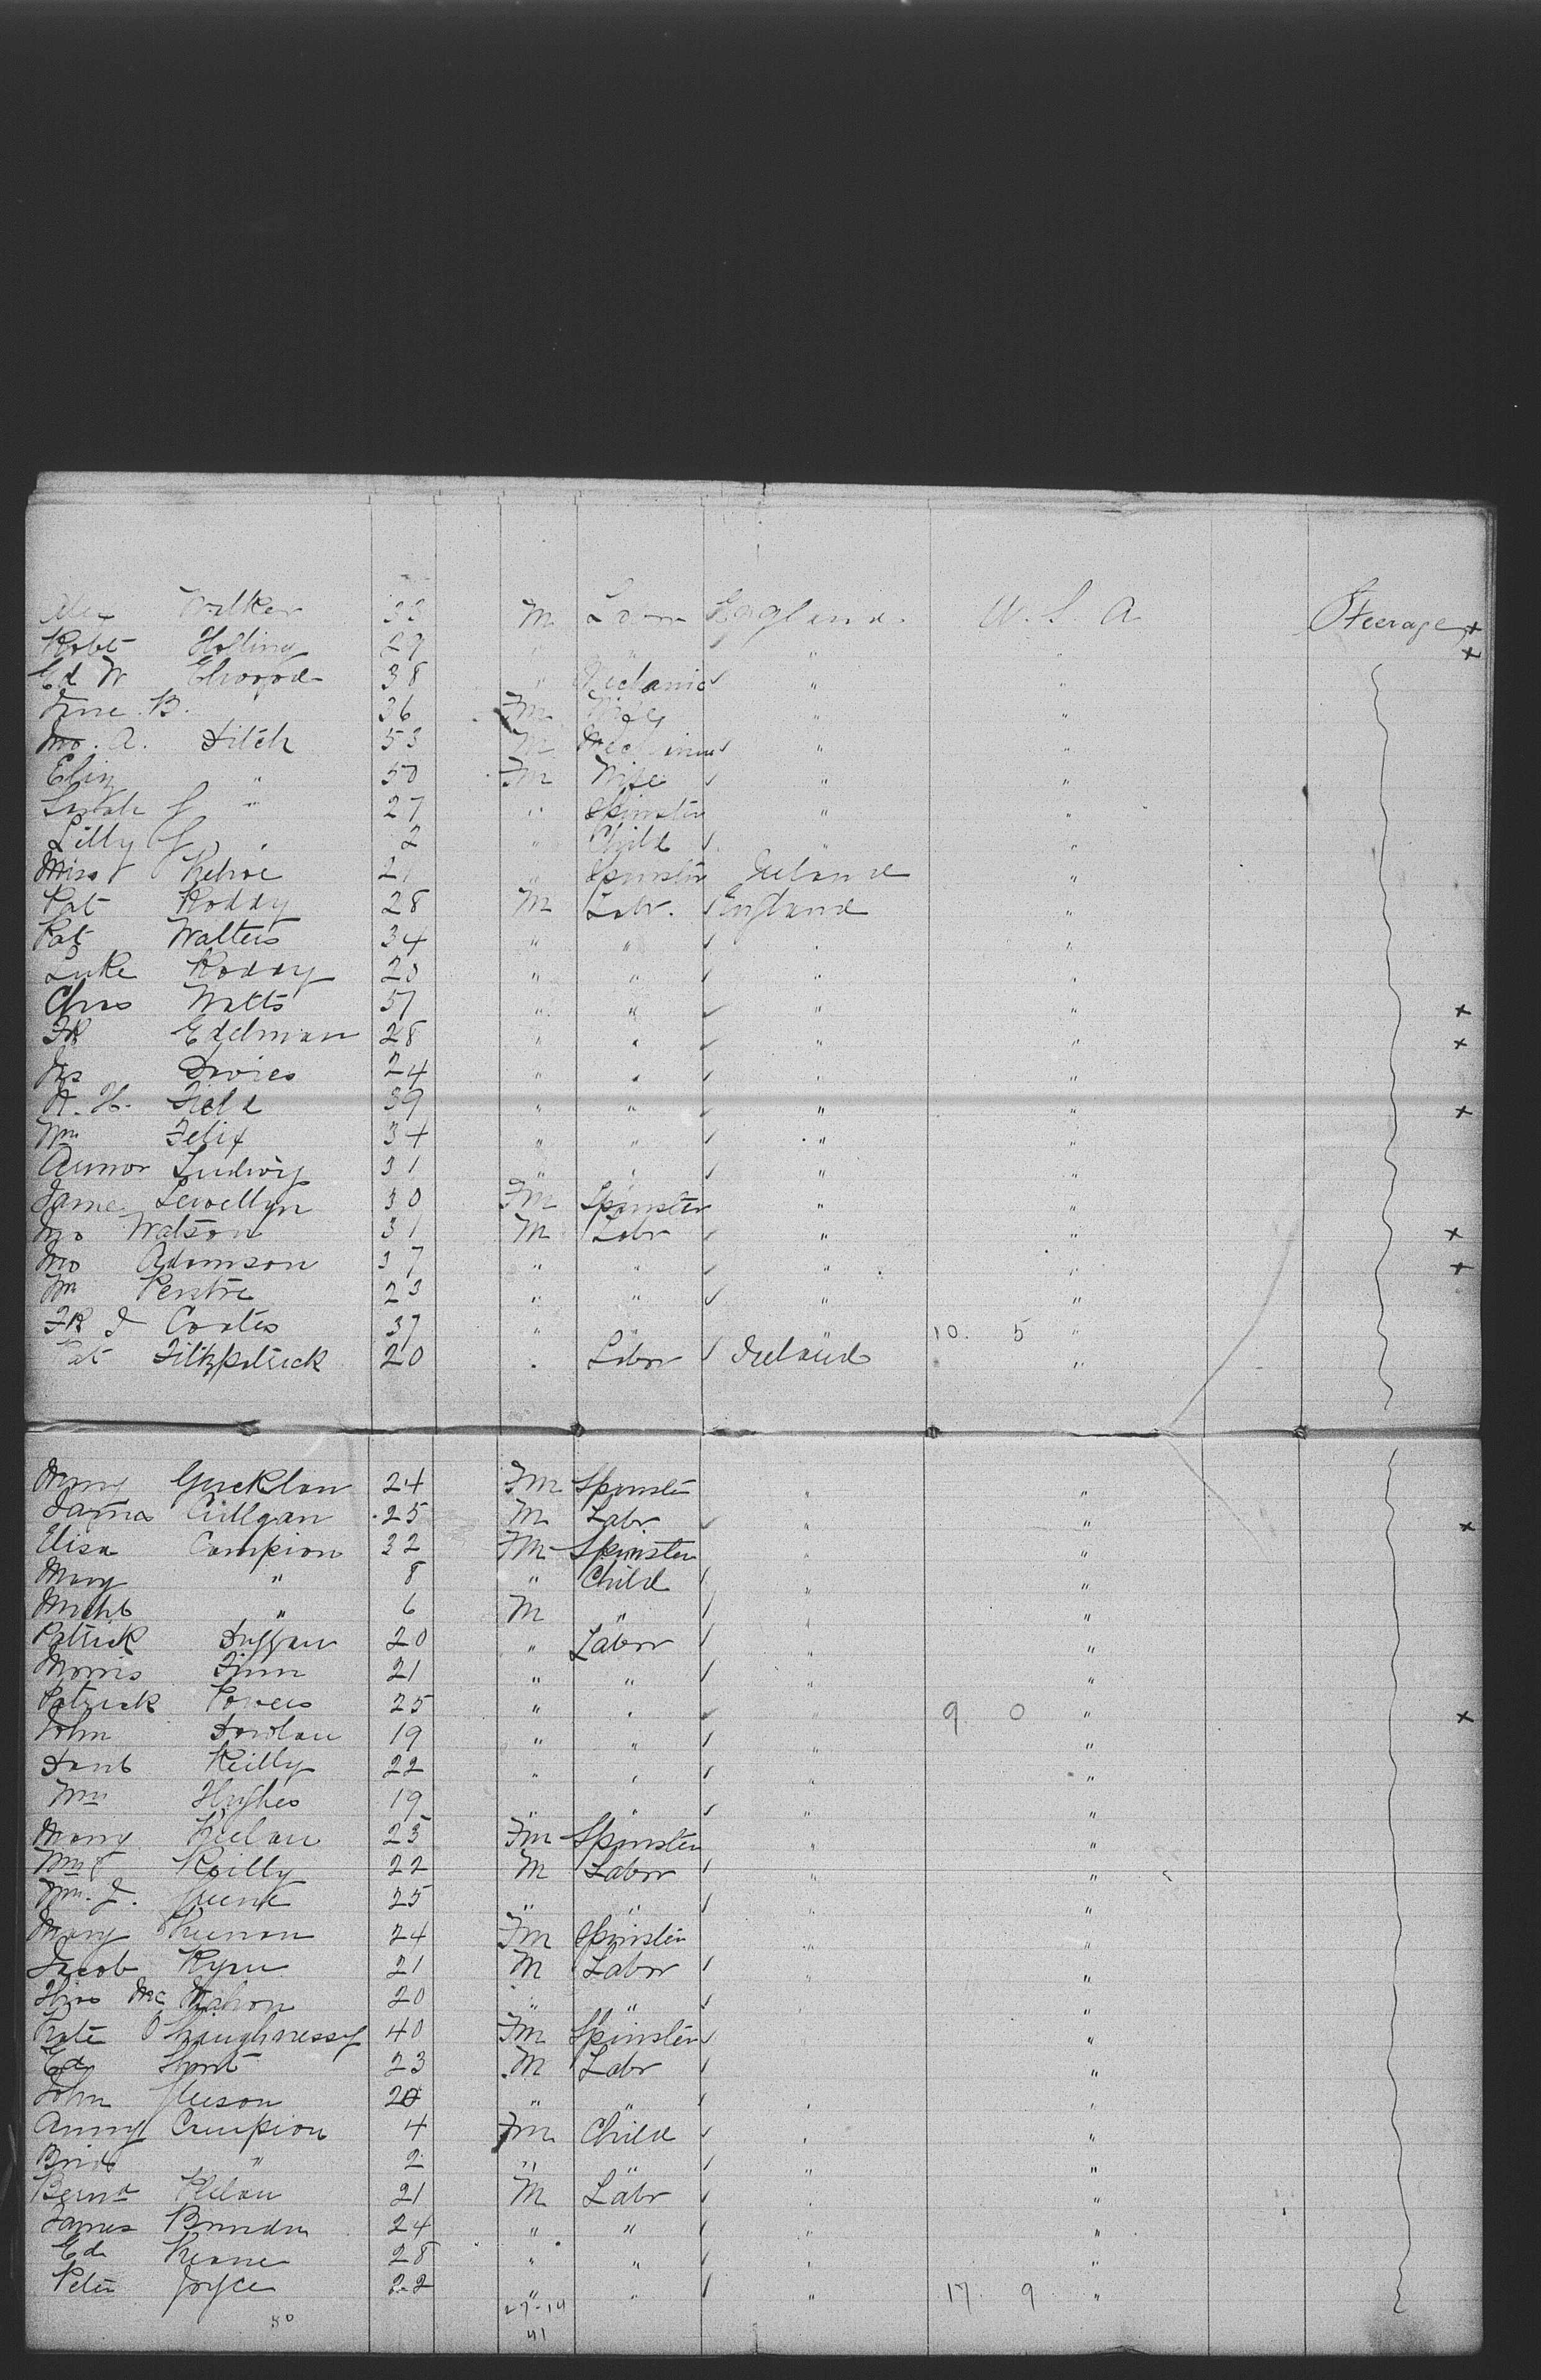 Alex Walker 33 M Labr England. U. S. A Steerage x
Robt Holling 29 " " " " x
Ed W Elwood 38 " Mechanic " "
Jane B. " 36 Fm Wife " "
Jno. A. Fitch 53 M " "
Eliz " 50 Fm Wife " "
Sarah J " 27 " Spinster " "
Lilly J " 2 " Child " "
Miss Kehoe 21 " Spinster Ireland "
Pat Roddy 28 M Labr. England "
Pat Walters 34 " " " "
Luke Roddy 23 " " " "
Chas Watts 51 " " " " x
Fk Edelman 28 " " " " x
Jas Davies 24 " " " "
A. H. Field 39 " " " " x
Wm Felix 34 " " " "
Ludwig 31 " " " "
Jane Lewellyn 30 Fm Spinster " "
Jno Watson 31 M Labr " " x
Jno Adamson 37 " " " " x
Wm Pentre 23 " " " "
Fk J Coates 37 " " 10. 5 "
Pat Fitzpatrick 20 " Labr Ireland "
Mary Gucklan 24 Fm Spinster " "
James Cullgan 25 M Labr " " x
Elisa Campion 32 Fm Spinster " "
Mary " 8 " Child " "
Michl " 6 M " " "
Patrick Duggan 20 " Labor " "
Morris Finn 21 " " " "
Patrick Powers 25 " " " 9 0 " x
John Dowlan 19 " " " "
Danl Reilly 22 " " " "
Wm Hughes 19 " " " "
Mary Keelan 23 Fm Spinster " "
Reilly 22 M Labor " "
Wm. J. 25 " " " "
Mary Keenan 24 Fm Spinster " "
Jacob Ryan 21 M Labor " "
Thos Mc Mahon 20 " " " "
Kate O Shaughnessy 40 Fm Spinster " "
Ed Hunt 23 M Labr " "
John 20 " " " "
Anny Campion 4 Fm Child " "
Brid " 2 " " " "
Bernd 21 M Labr " "
James 24 " " " "
Ed Keane 28 " " " "
Peter Joyce 22 " " " 17. 9 "
50 27-14
41